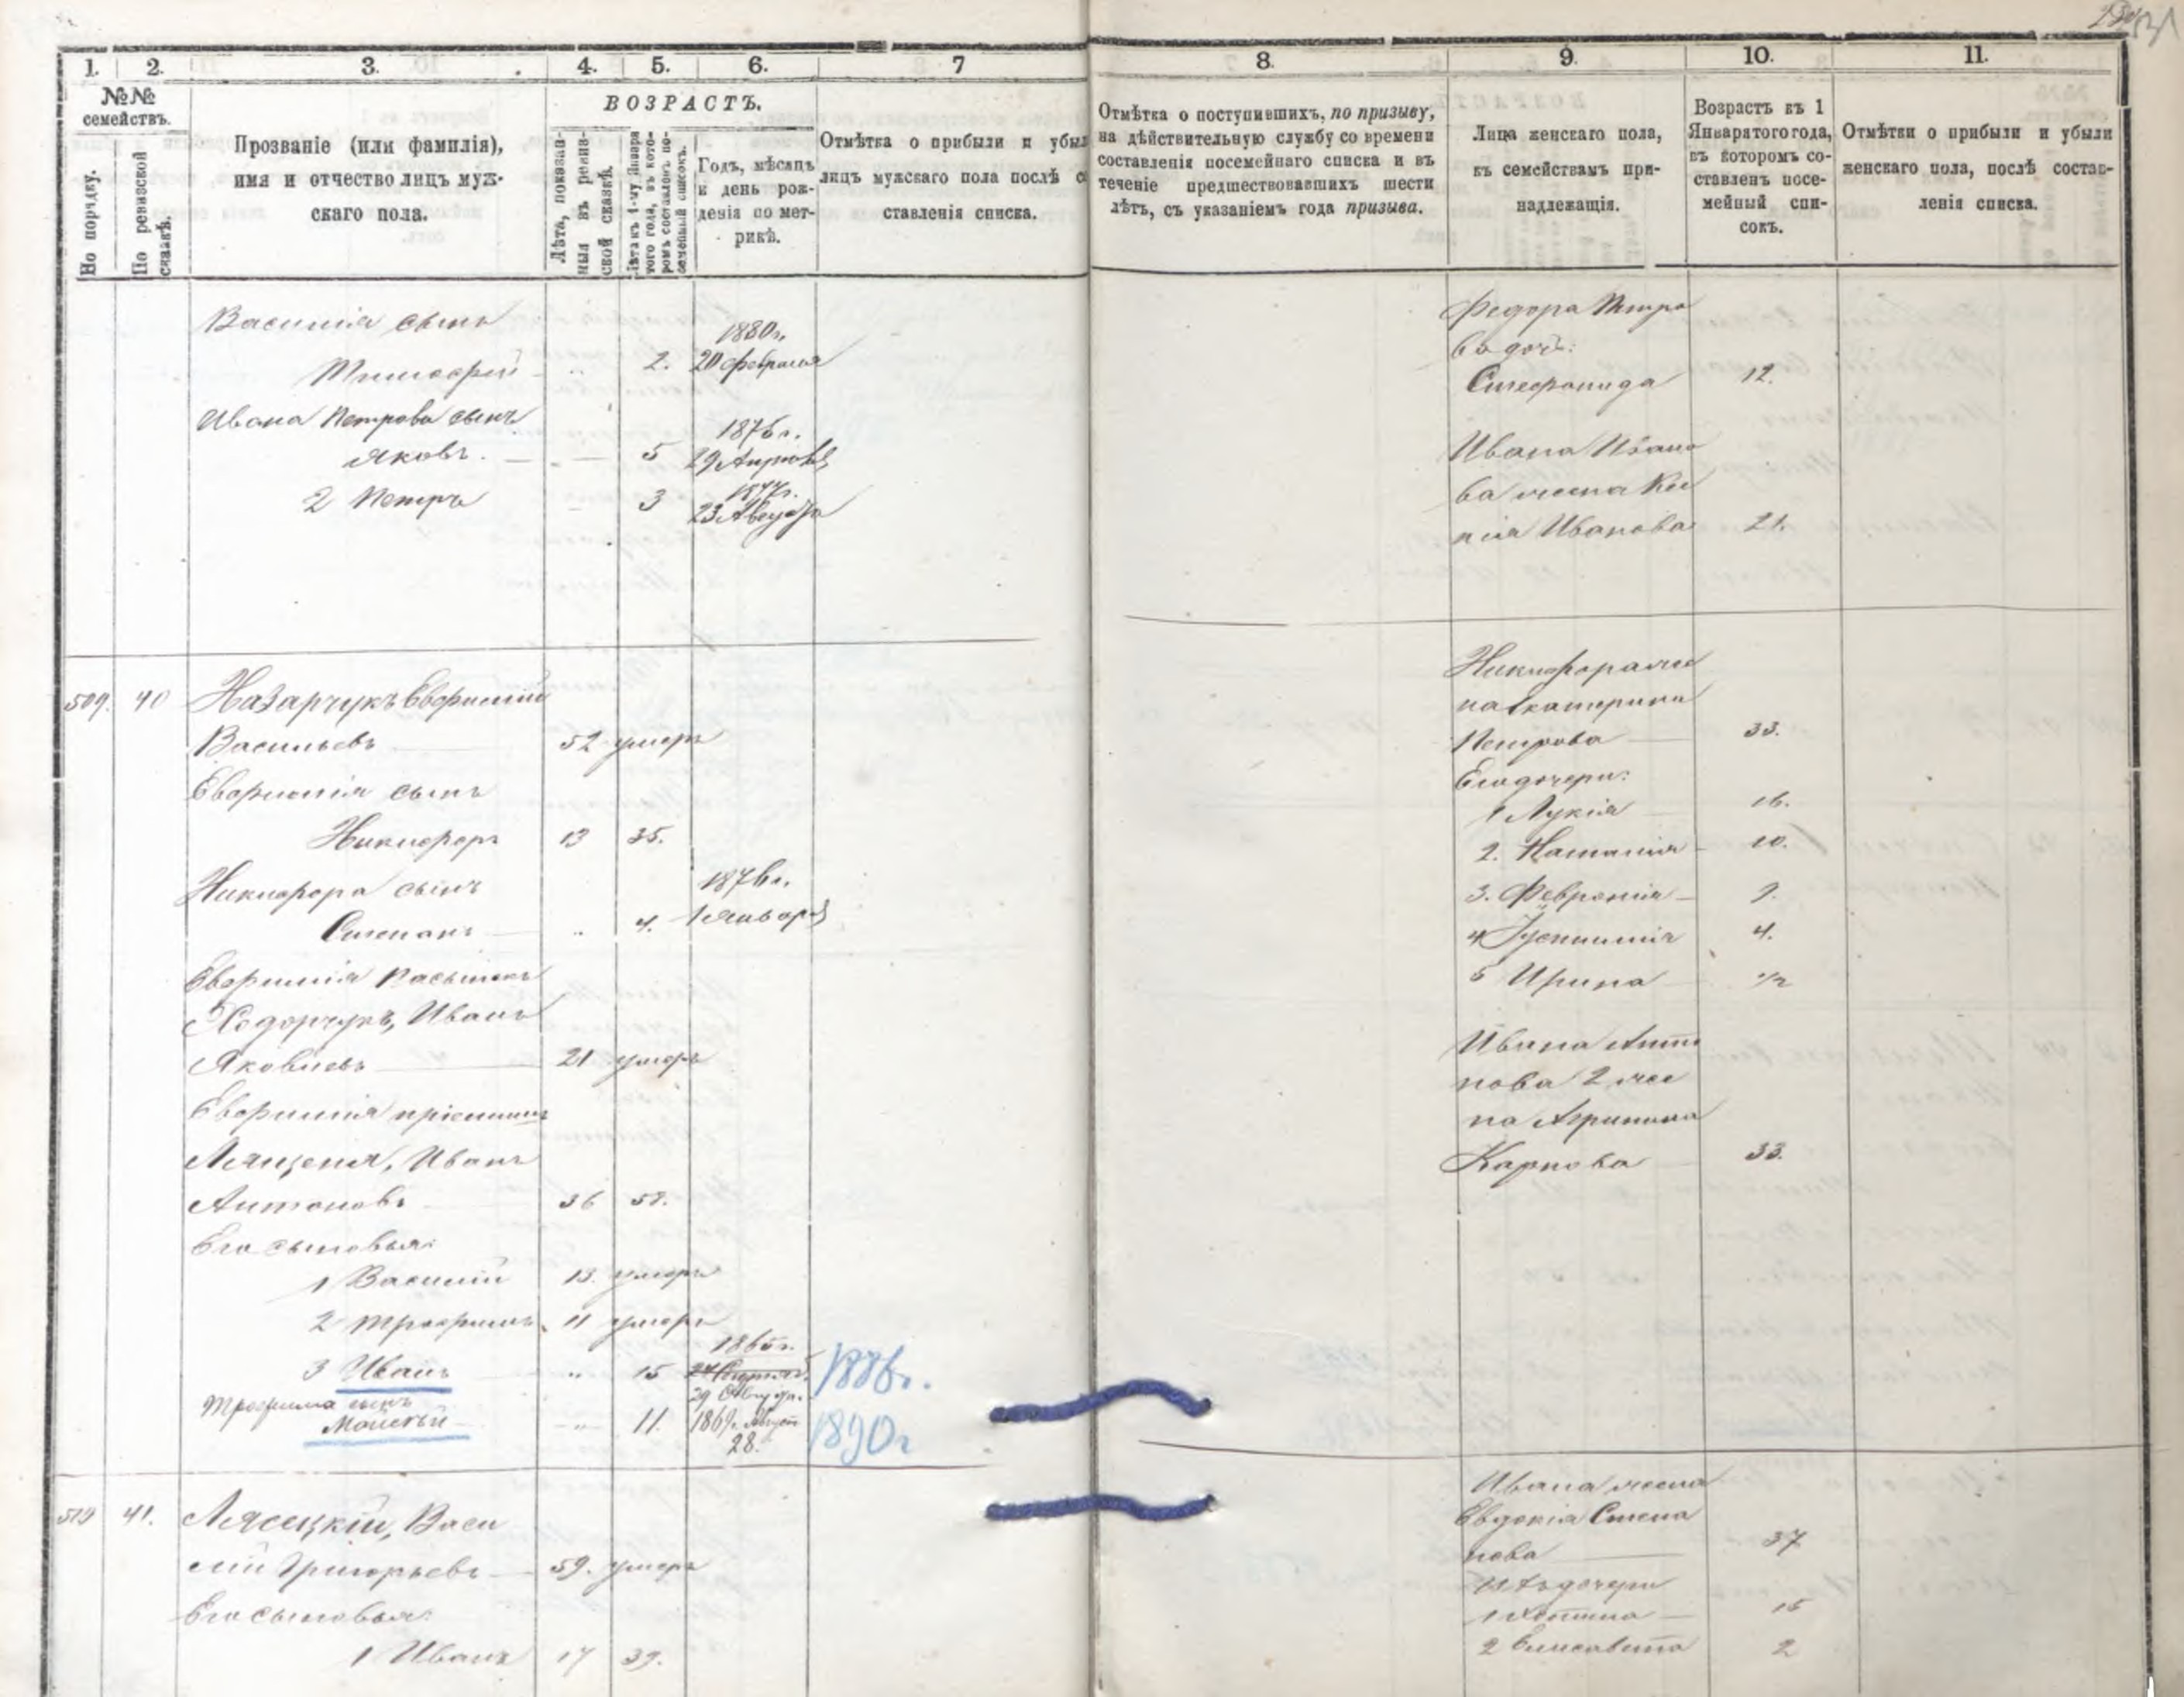 1.
2.
3.
4.
5.
6.
7
№№
семействъ.
По порядку.
По ревизской
сказкѣ.
Прозваніе (или фамилія),
имя и отчество лицъ муж-
скаго пола.
ВОЗРАСТЪ.
Лѣта, показан-
ныя въ ревиз-
ской сказкѣ.
Лѣта къ 1-му Января
того года, въ кото-
ромъ составленъ по-
семейный списокъ.
Годъ, мѣсяцъ
и день рож-
денія по мет-
рикѣ.
Отмѣтка о прибыли и убыл
лицъ мужскаго пола послѣ со
ставленія списка.
Василія сынъ
1880г.
Тимофей 2. 20 февраля
Ивана Петрова сынъ
1876 г.
Яковъ. 5 29 Апрѣля
1877г.
2 Петръ 3 23 Августа
509. 40 Назарчукъ Евфимій
Васильевъ 52 умеръ
Евфимія сынъ
Никифоръ 13 35.
Никифора сынъ
1876г.
Степанъ „ 4. 1 Января
Евфимія пасынокъ
Ходорчукъ, Иванъ
Яковлевъ 21 умеръ
Евфимія пріемышъ
Лященя, Иванъ
Антоновъ 36 58.
Его сыновья:
1 Василій 13. умеръ
2 Трофимъ 11 умеръ
1865г.
3 Иванъ „ 15
29 Августа.
1886г.
Трофима сынъ
Моисей „ 11. 1869г. Август
28.
1890г
510 41. Лясецкій, Васи
лій Григорьевъ 59. умеръ
Его сыновья:
1 Иванъ 17 39.
8.
9.
10.
11.
Отмѣтка о поступившихъ, по призыву,
на дѣйствительную службу со времени
составленія посемейнаго списка и въ
теченіе предшествовавшихъ шести
лѣтъ, съ указаніемъ года призыва.
Лица женскаго пола,
къ семействамъ при-
надлежащія.
Возрастъ къ 1
Января того года,
въ которомъ со-
ставленъ посе-
мейный спи-
сокъ.
Отмѣтки о прибыли и убыли
женскаго пола, послѣ состав-
ленія списка.
Федора Петро
ва дочь:
Стефанида 12.
Ивана Ивано
ва жена Ксе
нія Иванова 21.
Никифора же
на Екатерина
Петрова 33.
Его дочери:
1 Лукія 16.
2. Наталія 10.
3. Февронія 9.
4 Іустинія 4.
5 Ирина 1/2
Ивана Анто
нова 2 же
на Агрипина
Карпова 33.
Ивана жена
Евдокія Степа
нова 37
Ихъ дочери
15
2 Елисавета 2